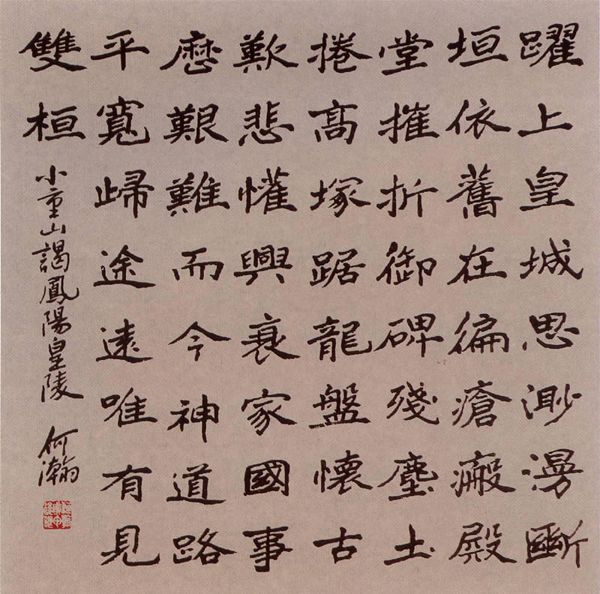 躍上皇城思渺漫斷
垣依舊在徧瘡瘢殿
堂摧折御碑殘塵土
捲高塚踞龍盤懷古
歎悲懽興衰家國事
歷艱難而今神道路
平寬歸途遠唯有見
雙桓
小重山謁鳳陽皇陵 何瀚